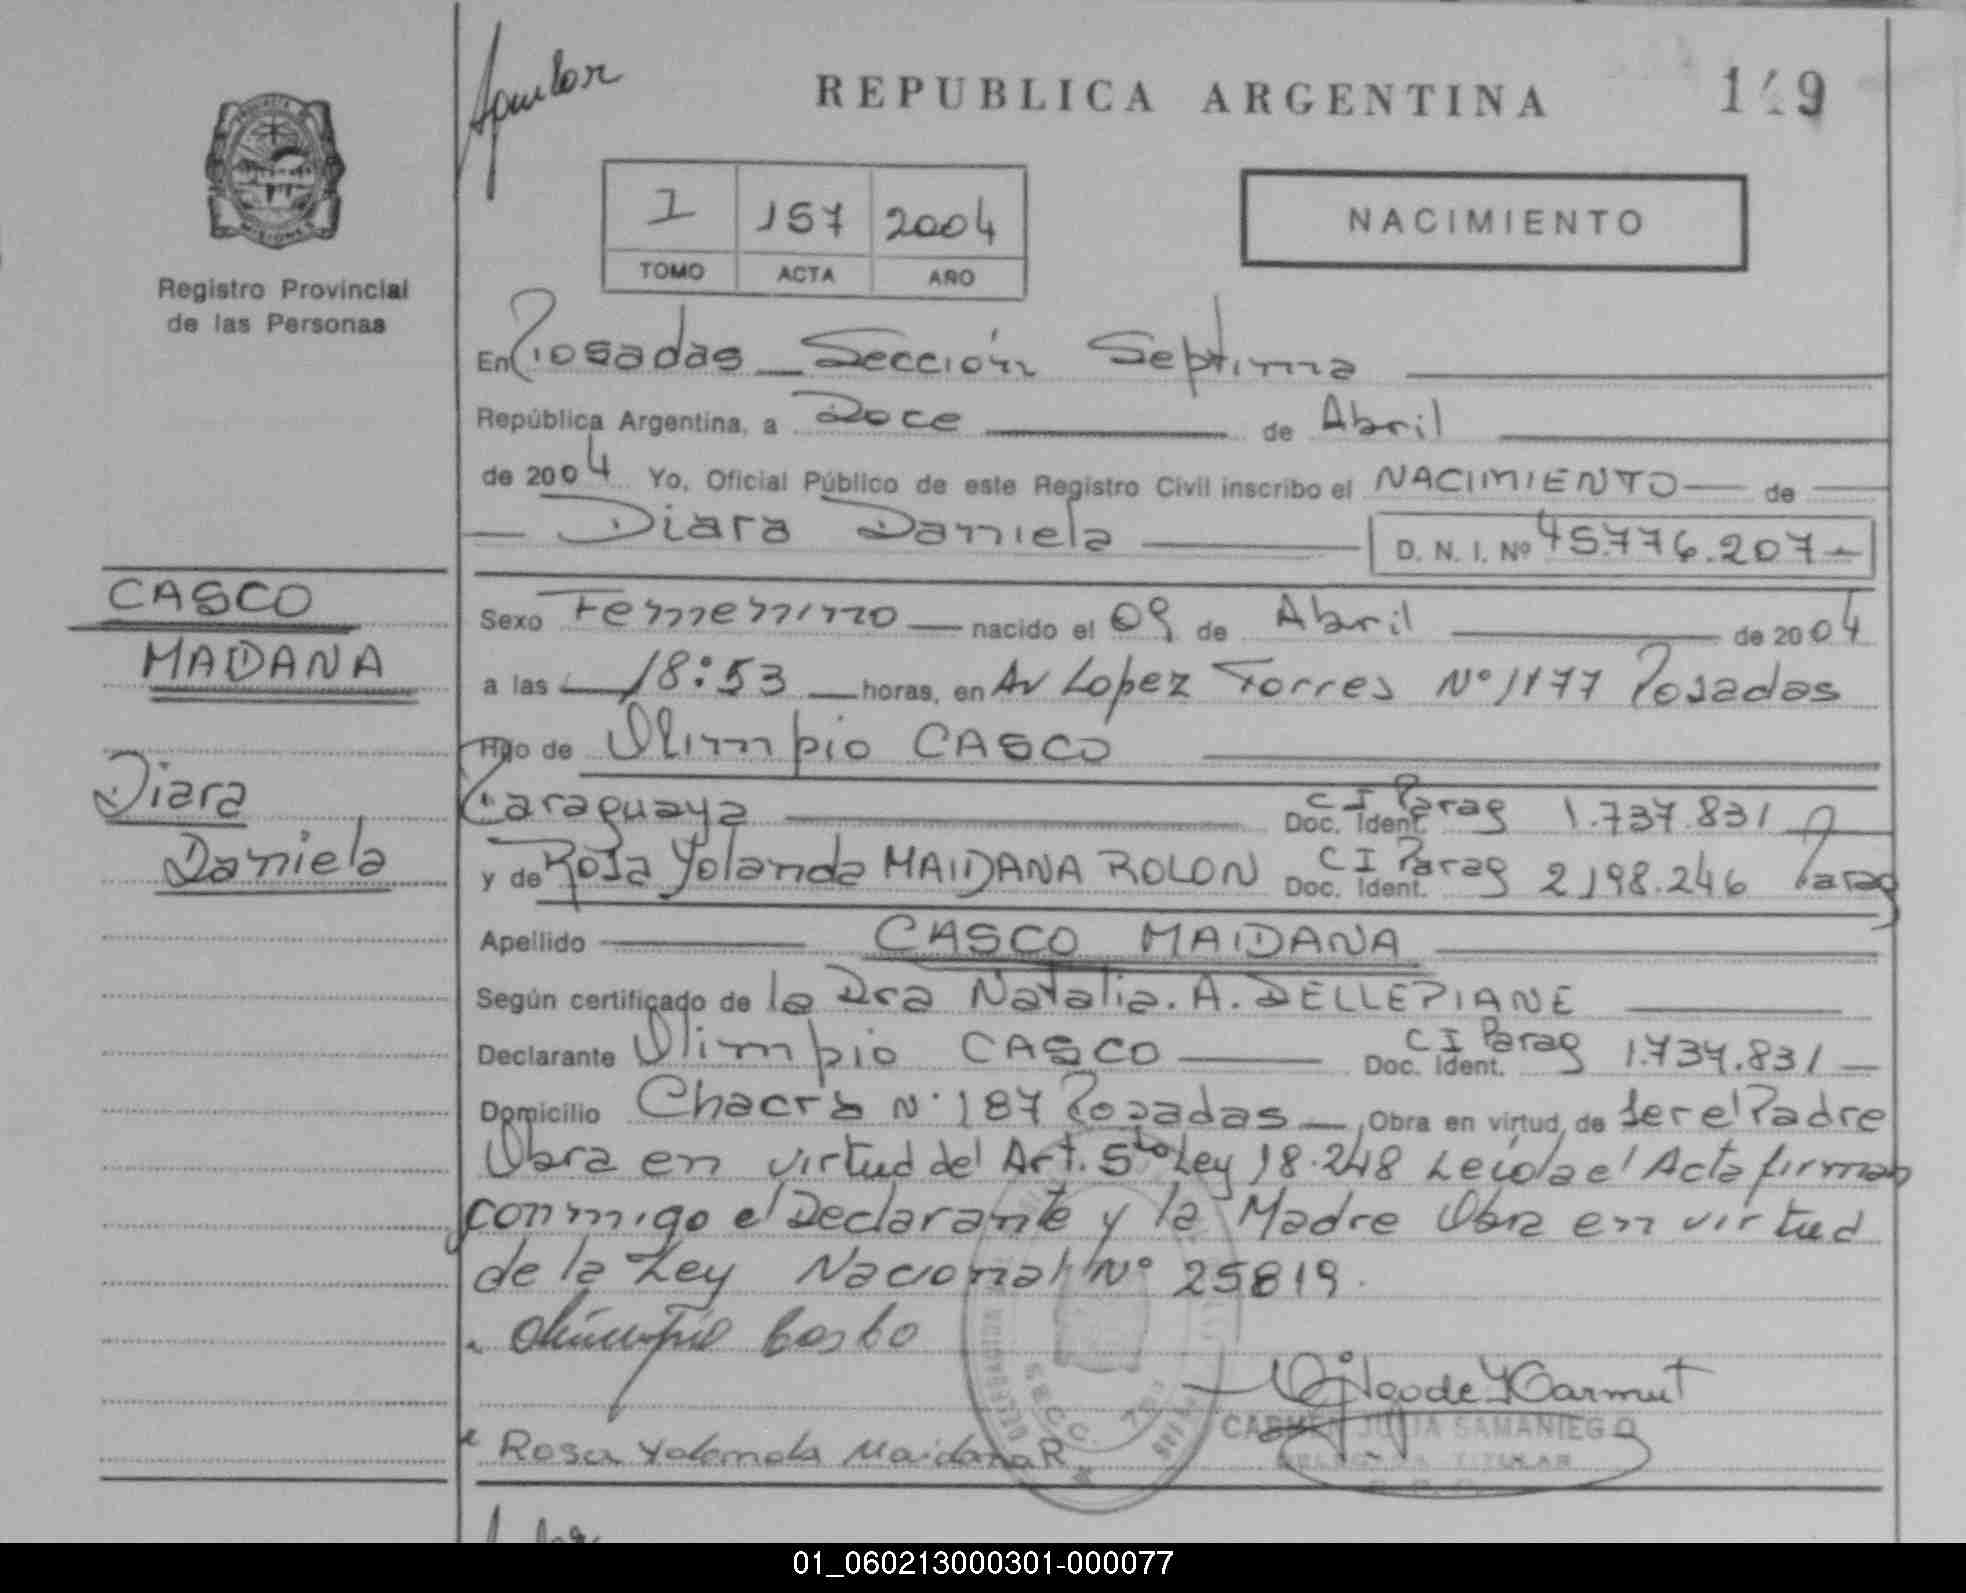 Aguilar
REPUBLICA ARGENTINA
Registro Provincial
de las Personas
I 157 2004
TOMO ACTA AÑO
NACIMIENTO
En Posadas Sección Septima
República Argentina, a Doce de Abril
de 2004 Yo, Oficial Público de este Registro Civil inscribo el NACIMIENTO de
Diara Daniela D. N. I. Nº 45.776.207
CASCO
MAIDANA
Diara
Daniela
Sexo Femenino nacido el 09 de Abril de 2004
a las 18:53 horas, en Av Lopez Torres Nº 1177 Posadas
Hijo de Olimpio CASCO
Paraguaya Doc. Ident. C I Parag 1.737.831
y de Rosa Yolanda MAIDANA ROLON Doc. Ident. C I Parag 2198.246 Parag
Apellido CASCO MAIDANA
Según certificado de la Dra Natalia. A. DELLEPIANE
Declarante Olimpio CASCO Doc. Ident. C I Parag 1.737.831
Domicilio Chacra Nº 187 Posadas Obra en virtud de ser el Padre
Obra en virtud del Art. 5to Ley 18.248 Leida el Acta firman
conmigo el Declarante y la Madre Obra en virtud
de la Ley Nacional Nº 25819.
Olimpio Casco
Rosa Yolanda Maidana R
CARMEN JULIA SAMANIEGO
DELEGADA TITULAR
SECC. 7ma
01_060213000301-000077